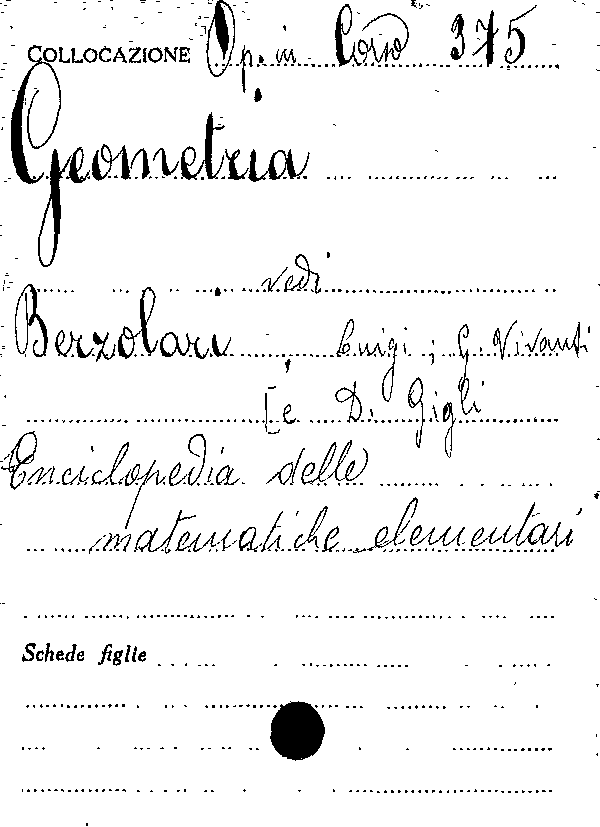 COLLOCAZIONE Op. in Corso 375
Geometria
vedi
Berzolari, Luigi; G. Vivanti
[e D. Gigli
Enciclopedia delle
matematiche elementari
Schede figlie